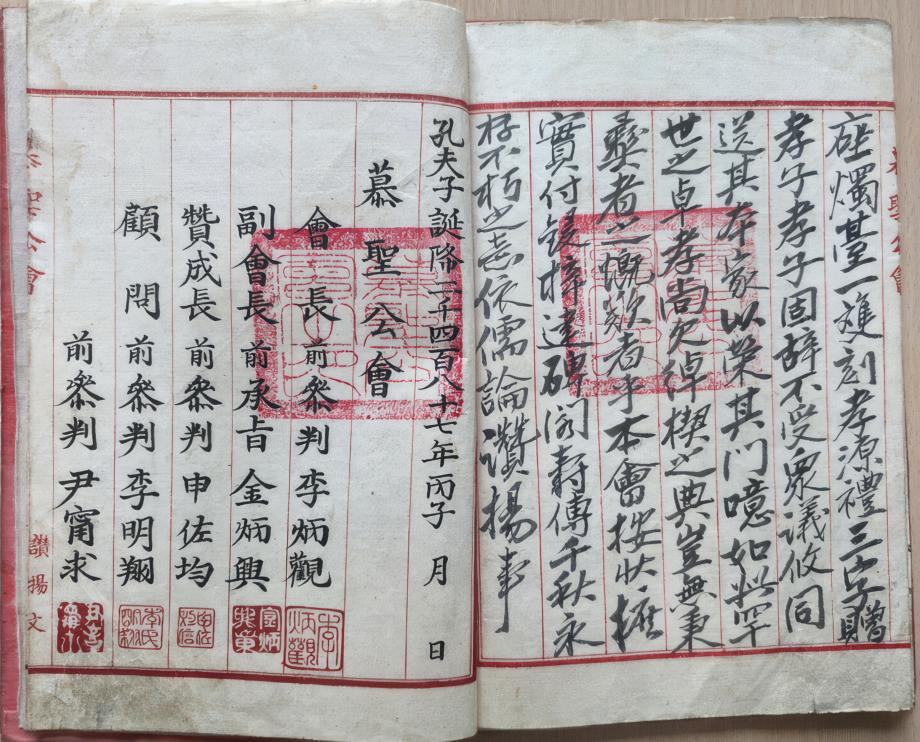 燭臺一雙刻孝源禮三字贈
孝子孝子固辭不受衆議攸同
送其本家以榮其門噫如此罕
世之卓孝尚欠綽楔之典豈無秉
彛者之慨歎者乎本會按狀摭
實付鋟梓建碑閣壽傳千秋永
存不朽之志依儒論讚揚事
孔夫子誕降二千四百八十七年丙子 月 日
慕聖公會
會長 前叅判 李炳觀
副會長 前承旨 金炳興
贊成長 前叅判 申佐均
顧問 前叅判 李明翔
前叅判 尹甯求
慕聖公會
讚揚文